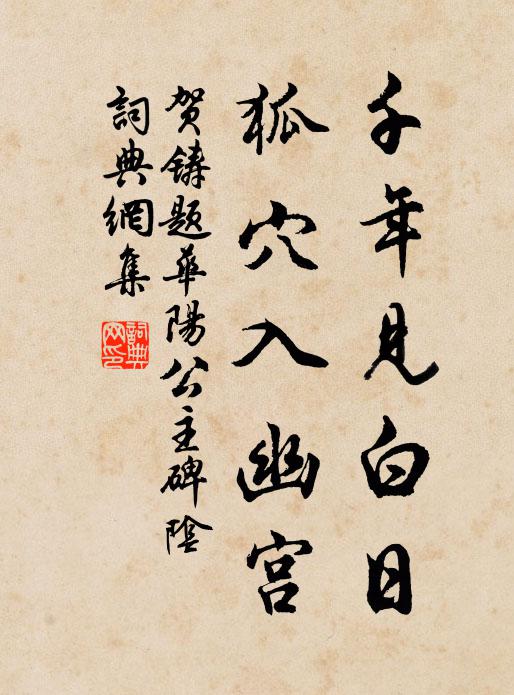 千年見白日
狐穴入幽宮
賀鑄題華陽公主碑陰
詞典網集
詞典網印